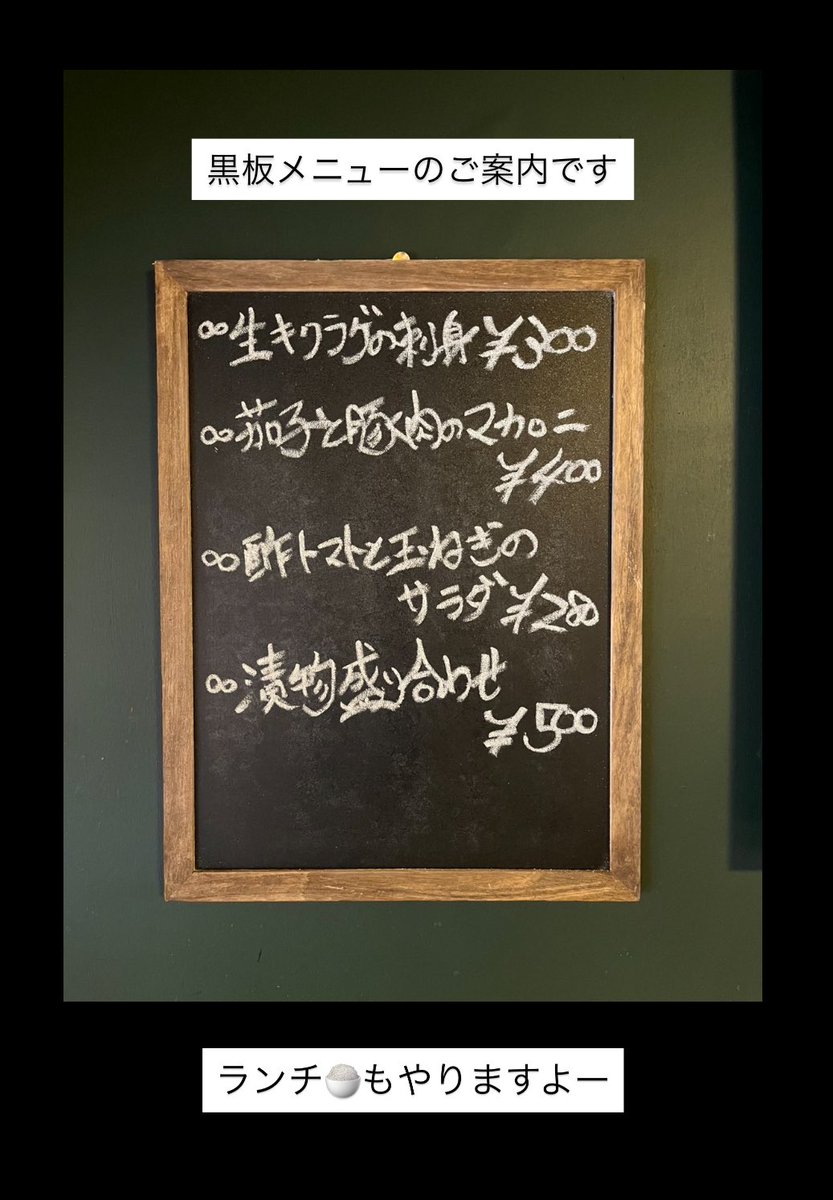 黒板メニューのご案内です
∞生キクラゲの刺身 ¥300
∞茄子と豚肉のマカロニ
¥400
∞酢トマトと玉ねぎの
サラダ ¥280
∞漬物盛り合わせ
¥500
ランチ🍚もやりますよー